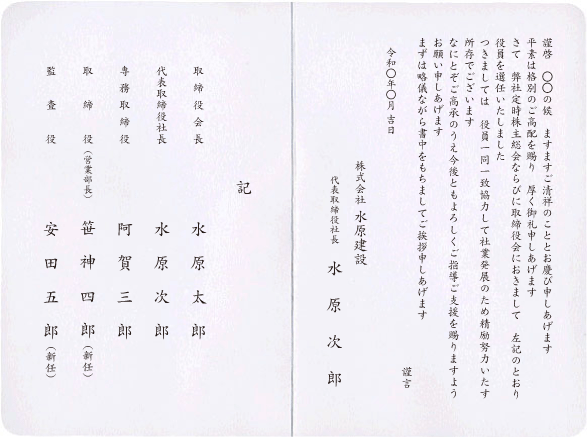 謹啓　〇〇の候　ますますご清祥のこととお慶び申しあげます
平素は格別のご高配を賜り　厚く御礼申しあげます
さて　弊社定時株主総会ならびに取締役会におきまして　左記のとおり
役員を選任いたしました
つきましては　役員一同一致協力して社業発展のため精励努力いたす
所存でございます
なにとぞご高承のうえ今後ともよろしくご指導ご支援を賜りますよう
お願い申しあげます
まずは略儀ながら書中をもちましてご挨拶申しあげます
謹言
令和〇年〇月吉日
株式会社　水原建設
代表取締役社長　水原次郎
記
取締役会長　水原太郎
代表取締役社長　水原次郎
専務取締役　阿賀三郎
取締役（営業部長）　笹神四郎（新任）
監査役　安田五郎（新任）